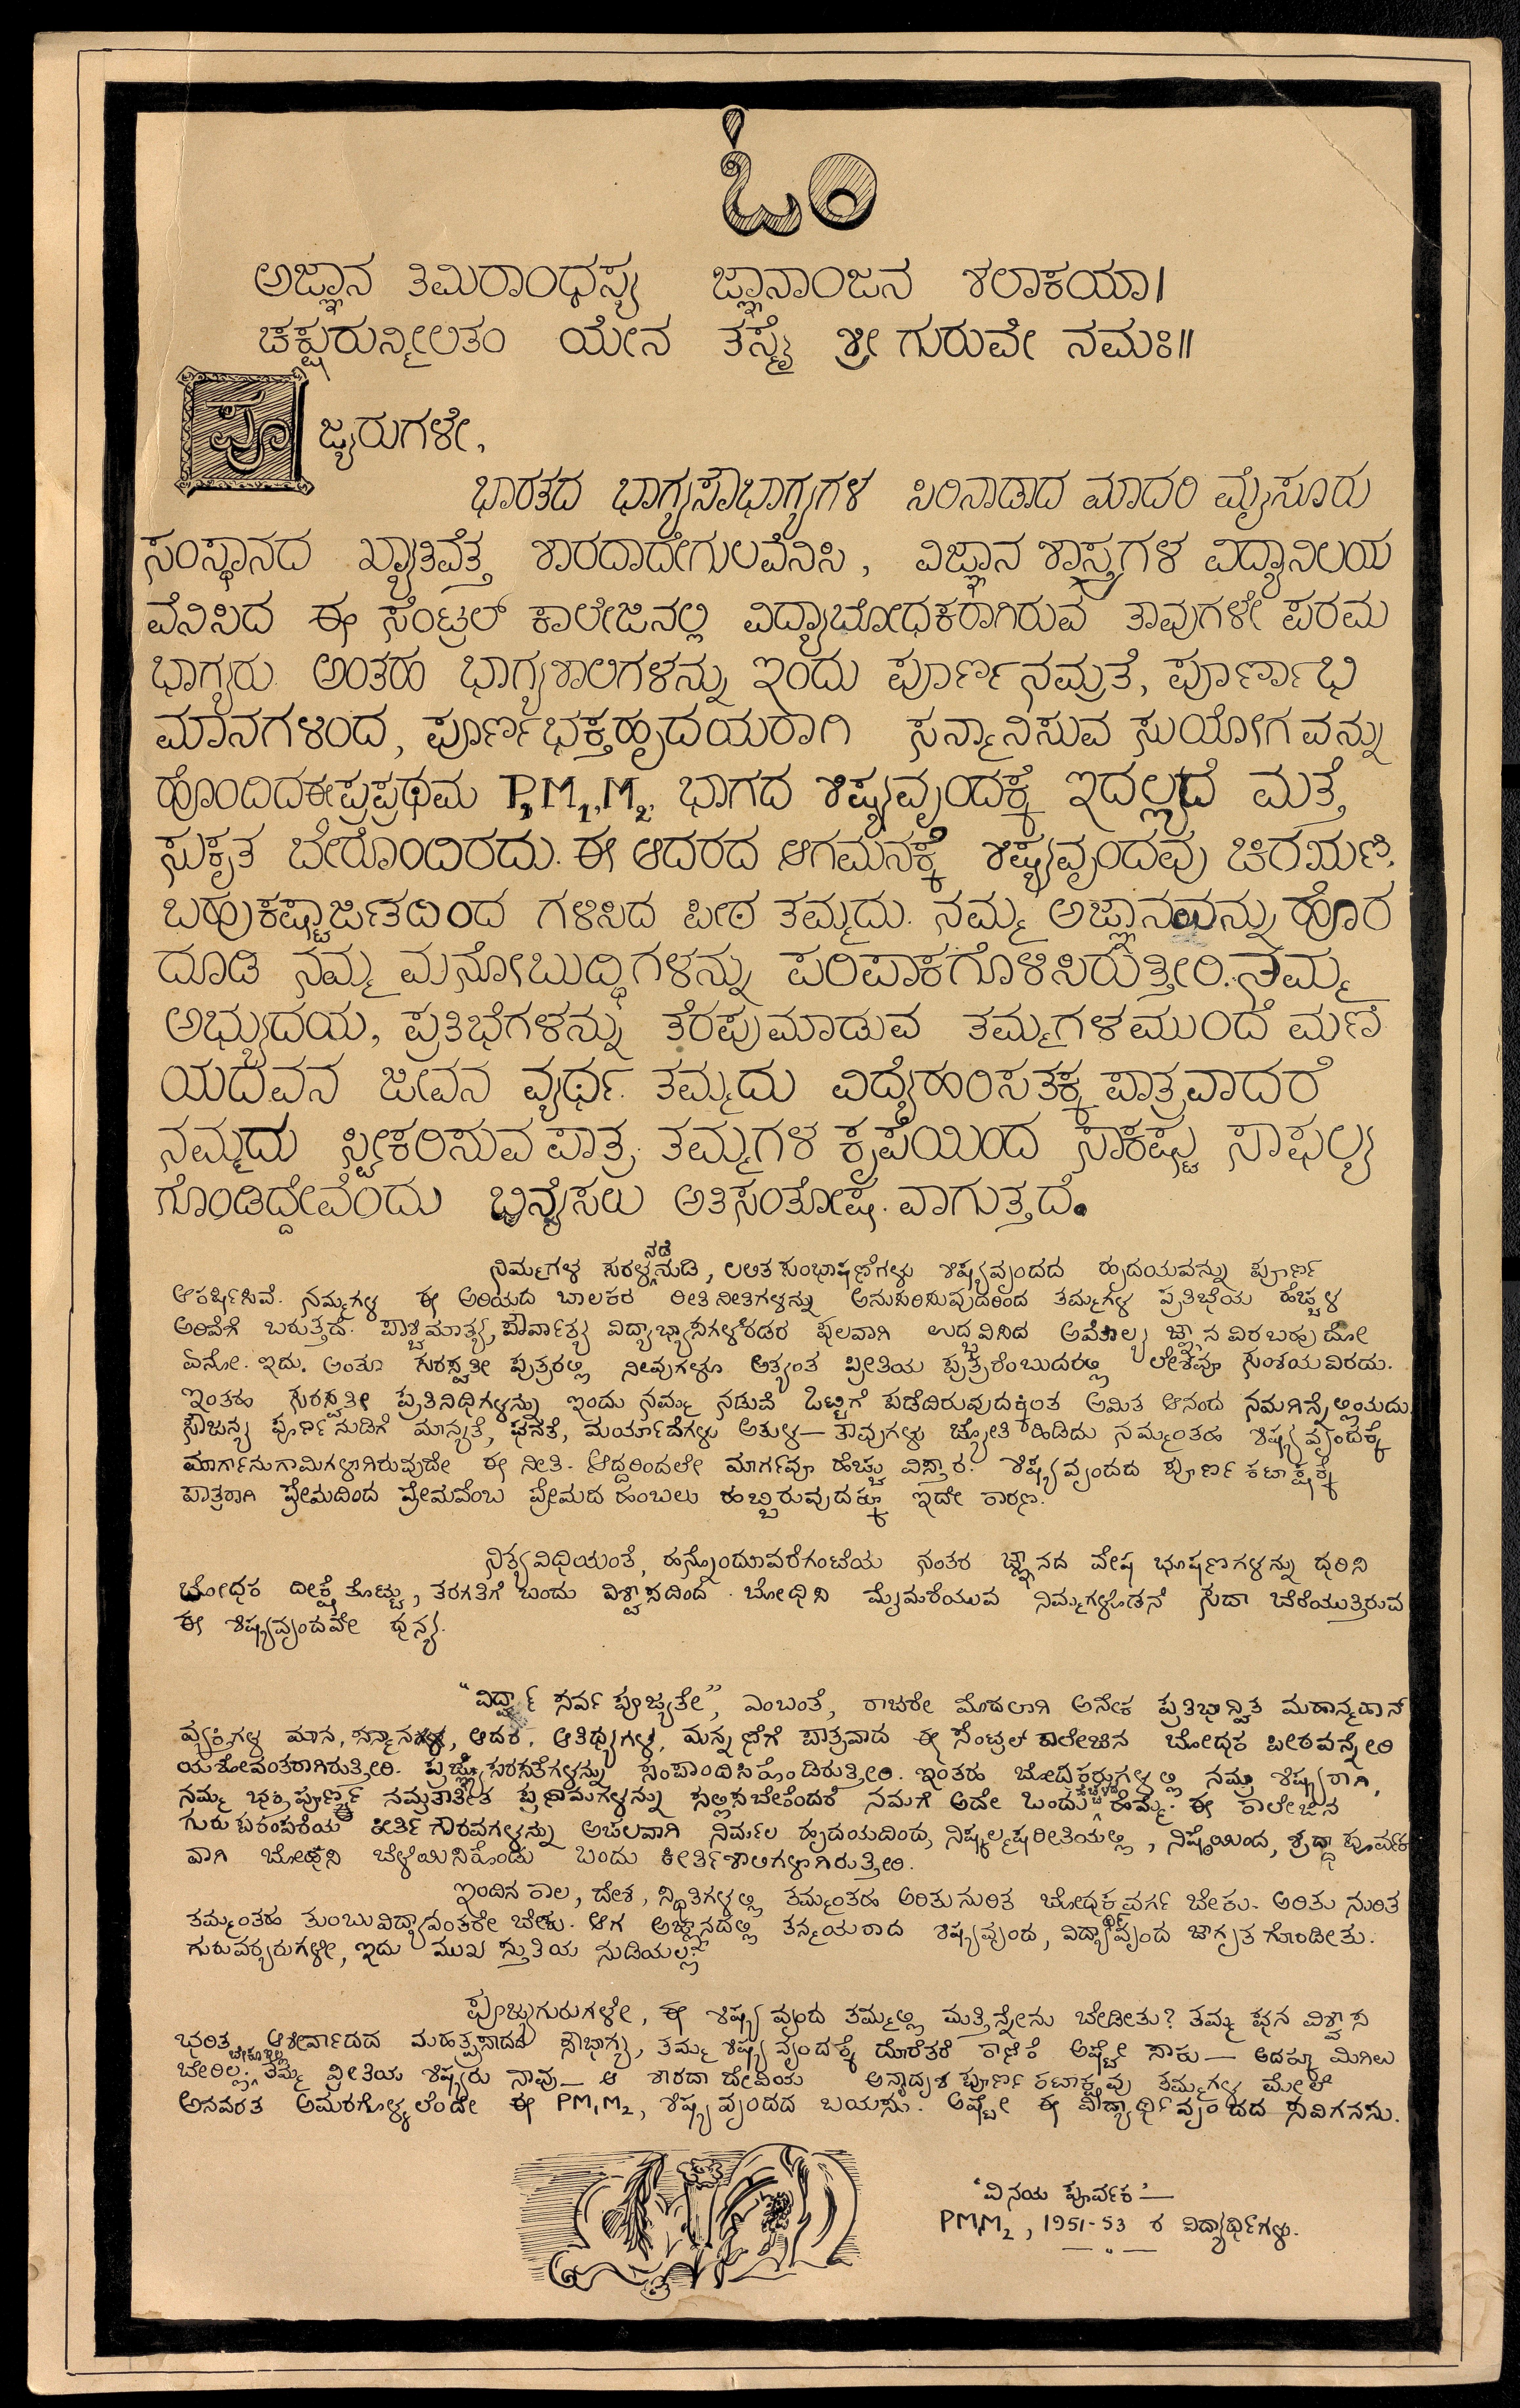 ಓಂ
ಅಜ್ಞಾನ ತಿಮಿರಾಂಧಸ್ಯ ಜ್ಞಾನಾಂಜನ ಶಲಾಕಯಾ।
ಚಕ್ಷುರುನ್ಮೀಲಿತಂ ಯೇನ ತಸ್ಮೈ ಶ್ರೀ ಗುರುವೇ ನಮಃ॥
ಪೂಜ್ಯರುಗಳೇ,
ಭಾರತದ ಭಾಗ್ಯಸೌಭಾಗ್ಯಗಳ ಸಿರಿನಾಡಾದ ಮಾದರಿ ಮೈಸೂರು
ಸಂಸ್ಥಾನದ ಖ್ಯಾತಿವೆತ್ತ ಶಾರದಾದೇಗುಲವೆನಿಸಿ, ವಿಜ್ಞಾನ ಶಾಸ್ತ್ರಗಳ ವಿದ್ಯಾನಿಲಯ
ವೆನಿಸಿದ ಈ ಸೆಂಟ್ರಲ್ ಕಾಲೇಜಿನಲ್ಲಿ ವಿದ್ಯಾಬೋಧಕರಾಗಿರುವ ತಾವುಗಳೇ ಪರಮ
ಭಾಗ್ಯರು. ಅಂತಹ ಭಾಗ್ಯಶಾಲಿಗಳನ್ನು ಇಂದು ಪೂರ್ಣನಮ್ರತೆ, ಪೂರ್ಣಾಭಿ
ಮಾನಗಳಿಂದ, ಪೂರ್ಣಭಕ್ತಹೃದಯರಾಗಿ ಸನ್ಮಾನಿಸುವ ಸುಯೋಗವನ್ನು
ಹೊಂದಿದ ಈ ಪ್ರಪ್ರಥಮ P, M₁, M₂, ಭಾಗದ ಶಿಷ್ಯವೃಂದಕ್ಕೆ ಇದಲ್ಲದೆ ಮತ್ತೆ
ಸುಕೃತ ಬೇರೊಂದಿರದು. ಈ ಆದರದ ಆಗಮನಕ್ಕೆ ಶಿಷ್ಯವೃಂದವು ಚಿರಋಣಿ.
ಬಹುಕಷ್ಟಾರ್ಜಿತದಿಂದ ಗಳಿಸಿದ ಪೀಠ ತಮ್ಮದು. ನಮ್ಮ ಅಜ್ಞಾನವನ್ನು ಹೊರ
ದೂಡಿ ನಮ್ಮ ಮನೋಬುದ್ಧಿಗಳನ್ನು ಪರಿಪಾಕಗೊಳಿಸಿರುತ್ತೀರಿ. ನಮ್ಮ
ಅಭ್ಯುದಯ, ಪ್ರತಿಭೆಗಳನ್ನು ತೆರಪುಮಾಡುವ ತಮ್ಮಗಳ ಮುಂದೆ ಮಣಿ
ಯದವನ ಜೀವನ ವ್ಯರ್ಥ. ತಮ್ಮದು ವಿದ್ಯೆಹರಿಸತಕ್ಕ ಪಾತ್ರವಾದರೆ
ನಮ್ಮದು ಸ್ವೀಕರಿಸುವ ಪಾತ್ರ. ತಮ್ಮಗಳ ಕೃಪೆಯಿಂದ ಸಾಕಷ್ಟು ಸಾಫಲ್ಯ
ಗೊಂಡಿದ್ದೇವೆಂದು ಭಿನ್ನೈಸಲು ಅತಿಸಂತೋಷ ವಾಗುತ್ತದೆ.
ನಿಮ್ಮಗಳ ಸರಳ ನಡೆ ನುಡಿ, ಲಲಿತ ಸಂಭಾಷಣೆಗಳು ಶಿಷ್ಯವೃಂದದ ಹೃದಯವನ್ನು ಪೂರ್ಣ
ಆಕರ್ಷಿಸಿವೆ. ನಮ್ಮಗಳ ಈ ಅರಿಯದ ಬಾಲಕರ ರೀತಿನೀತಿಗಳನ್ನು ಅನುಸರಿಸುವುದರಿಂದ ತಮ್ಮಗಳ ಪ್ರತಿಭೆಯ ಹೆಚ್ಚಳ
ಅರಿವಿಗೆ ಬರುತ್ತದೆ. ಪಾಶ್ಚಿಮಾತ್ಯ, ಪೌರ್ವಾತ್ಯ ವಿದ್ಯಾಭ್ಯಾಸಗಳೆರಡರ ಫಲವಾಗಿ ಉದ್ಭವಿಸಿದ ಜ್ಞಾನವಿರಬಹುದೋ
ಏನೋ. ಇದು. ಅಂತೂ ಸರಸ್ವತೀ ಪುತ್ರರಲ್ಲಿ ನೀವುಗಳೂ ಅತ್ಯಂತ ಪ್ರೀತಿಯ ಪುತ್ರರೆಂಬುದರಲ್ಲಿ ಲೇಶವೂ ಸಂಶಯವಿರದು.
ಇಂತಹ ಸರಸ್ವತೀ ಪ್ರತಿನಿಧಿಗಳನ್ನು ಇಂದು ನಮ್ಮ ನಡುವೆ ಒಟ್ಟಿಗೆ ಪಡೆದಿರುವುದಕ್ಕಿಂತ ಅಮಿತ ಆನಂದ ನಮಗಿನ್ನೆಲ್ಲಿಯದು.
ಸೌಜನ್ಯ ಪೂರ್ಣನುಡಿಗೆ ಮಾನ್ಯತೆ, ಘನತೆ, ಮರ್ಯಾದೆಗಳು ಅತುಳ — ತಾವುಗಳು ಜ್ಯೋತಿ ಹಿಡಿದು ನಮ್ಮಂತಹ ಶಿಷ್ಯವೃಂದಕ್ಕೆ
ಮಾರ್ಗಾನುಗಾಮಿಗಳಾಗಿರುವುದೇ ಈ ನೀತಿ. ಆದ್ದರಿಂದಲೇ ಮಾರ್ಗವೂ ಹೆಚ್ಚು ವಿಸ್ತಾರ. ಶಿಷ್ಯವೃಂದದ ಪೂರ್ಣ ಕಟಾಕ್ಷಕ್ಕೆ
ಪಾತ್ರರಾಗಿ ಪ್ರೇಮದಿಂದ ಪ್ರೇಮವೆಂಬ ಪ್ರೇಮದ ಹಂಬಲು ಹಬ್ಬಿರುವುದಕ್ಕೂ ಇದೇ ಕಾರಣ.
ನಿತ್ಯವಿಧಿಯಂತೆ, ಹನ್ನೊಂದೂವರೆಗಂಟೆಯ ನಂತರ ಜ್ಞಾನದ ವೇಷ ಭೂಷಣಗಳನ್ನು ಧರಿಸಿ
ಬೋಧಕ ದೀಕ್ಷೆತೊಟ್ಟು, ತರಗತಿಗೆ ಬಂದು ವಿಶ್ವಾಸದಿಂದ ಬೋಧಿಸಿ ಮೈಮರೆಯುವ ನಿಮ್ಮಗಳೊಡನೆ ಸದಾ ಬೆರೆಯುತ್ತಿರುವ
ಈ ಶಿಷ್ಯವೃಂದವೇ ಧನ್ಯ.
"ವಿದ್ವಾನ್ ಸರ್ವ ಪೂಜ್ಯತೇ", ಎಂಬಂತೆ, ರಾಜರೇ ಮೊದಲಾಗಿ ಅನೇಕ ಪ್ರತಿಭಾನ್ವಿತ ಮಹಾನ್ಮಹಾನ್
ವ್ಯಕ್ತಿಗಳ ಮಾನ, ಸನ್ಮಾನ, ಆದರ, ಆತಿಥ್ಯಗಳ, ಮನ್ನಣೆಗೆ ಪಾತ್ರವಾದ ಈ ಸೆಂಟ್ರಲ್ ಕಾಲೇಜಿನ ಬೋಧಕ ಪೀಠವನ್ನೇರಿ
ಯಶೋವಂತರಾಗಿರುತ್ತೀರಿ. ಸಂಪಾದಿಸಿಕೊಂಡಿರುತ್ತೀರಿ. ಇಂತಹ ಬೋಧಕರುಗಳಲ್ಲಿ ನಮ್ರ ಶಿಷ್ಯರಾಗಿ,
ನಮ್ಮ ಭಕ್ತಿಪೂರ್ಣ ಪ್ರಣಾಮಗಳನ್ನು ಸಲ್ಲಿಸಬೇಕೆಂದರೆ ನಮಗೆ ಅದೇ ಒಂದು ಹೆಮ್ಮೆ. ಈ ಕಾಲೇಜಿನ
ಗುರುಪರಂಪರೆಯ ಕೀರ್ತಿ ಗೌರವಗಳನ್ನು ಅಚಲವಾಗಿ ನಿರ್ಮಲ ಹೃದಯದಿಂದ, ನಿಷ್ಕಲ್ಮಷರೀತಿಯಲ್ಲಿ, ನಿಷ್ಠೆಯಿಂದ, ಶ್ರದ್ಧಾ ಪೂರ್ವಕ
ವಾಗಿ ಬೋಧಿಸಿ ಬೆಳೆಯಿಸಿಕೊಂಡು ಬಂದು ಕೀರ್ತಿಶಾಲಿಗಳಾಗಿರುತ್ತೀರಿ.
ಇಂದಿನ ಕಾಲ, ದೇಶ, ಸ್ಥಿತಿಗಳಲ್ಲಿ ತಮ್ಮಂತಹ ಅರಿತು ನುರಿತ ಬೋಧಕವರ್ಗ ಬೇಕು. ಅರಿತು ನುರಿತ
ತಮ್ಮಂತಹ ತುಂಬುವಿದ್ಯಾವಂತರೇ ಬೇಕು. ಆಗ ಅಜ್ಞಾನದಲ್ಲಿ ತನ್ಮಯರಾದ ಶಿಷ್ಯವೃಂದ, ವಿದ್ಯಾರ್ಥಿವೃಂದ ಜಾಗೃತಗೊಂಡೀತು.
ಗುರುವರ್ಯರುಗಳೇ, ಇದು ಮುಖ ಸ್ತುತಿಯ ನುಡಿಯಲ್ಲ.
ಪೂಜ್ಯಗುರುಗಳೇ, ಈ ಶಿಷ್ಯವೃಂದ ತಮ್ಮಲ್ಲಿ ಮತ್ತಿನ್ನೇನು ಬೇಡೀತು? ತಮ್ಮ ಘನ ವಿಶ್ವಾಸ
ಭರಿತ ಆಶೀರ್ವಾದದ ಮಹತ್ಪ್ರಸಾದದ ಸೌಭಾಗ್ಯ, ತಮ್ಮ ಶಿಷ್ಯವೃಂದಕ್ಕೆ ದೊರೆತರೆ ಕಾಣಿಕೆ ಅಷ್ಟೇ ಸಾಕು — ಅದಕ್ಕೂ ಮಿಗಿಲು
ಬೇರಿಲ್ಲ. ಬೇಕೂ ಇಲ್ಲ ತಮ್ಮ ಪ್ರೀತಿಯ ಶಿಷ್ಯರು ನಾವು — ಆ ಶಾರದಾದೇವಿಯ ಅನ್ಯಾದೃಶ ಪೂರ್ಣ ಕಟಾಕ್ಷವು ತಮ್ಮಗಳ ಮೇಲೆ
ಅನವರತ ಅಮರಗೊಳ್ಳಲೆಂದೇ ಈ PM₁M₂, ಶಿಷ್ಯವೃಂದದ ಬಯಸು. ಅಷ್ಟೇ ಈ ವಿದ್ಯಾರ್ಥಿವೃಂದದ ಸವಿಗನಸು.
"ವಿನಯ ಪೂರ್ವಕ" —
PM₁M₂, 1951-53 ರ ವಿದ್ಯಾರ್ಥಿಗಳು.